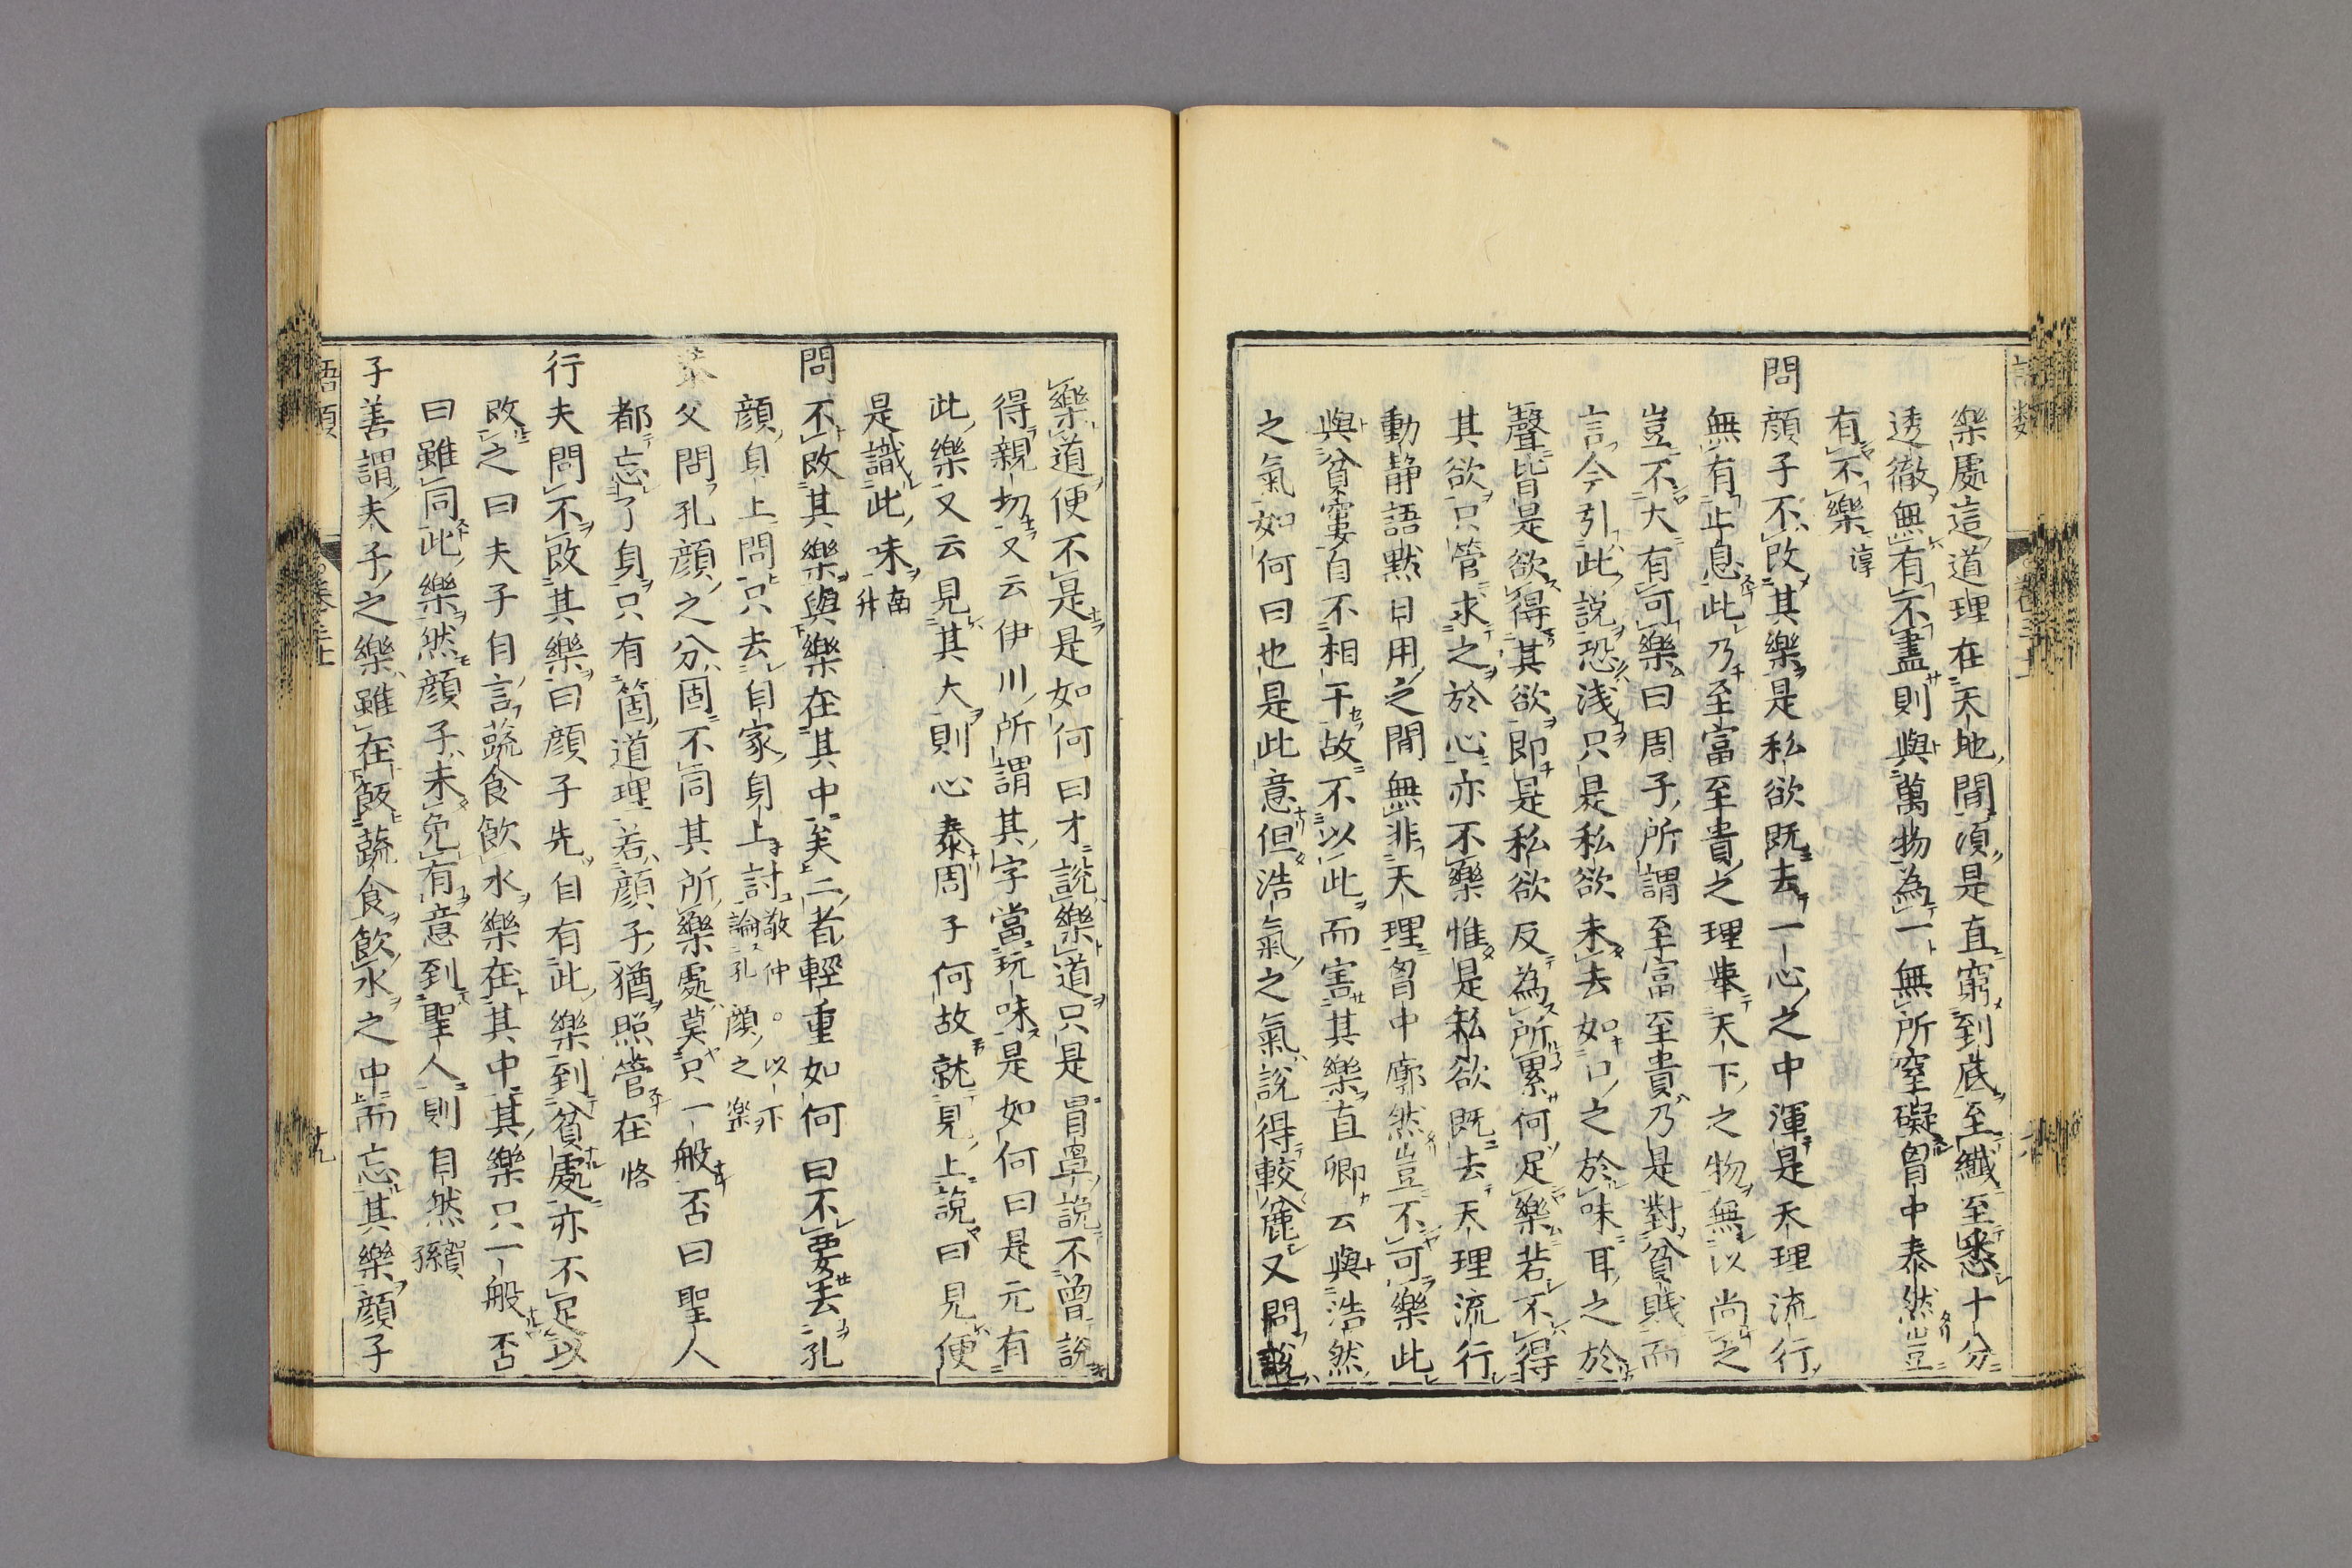 樂處這道理在天地間須是直窮到底至纖至悉十分
透徹無有不盡則與萬物為一無所窒礙胷中泰然豈
有不樂 淳
問顔子不改其樂是私欲既去一心之中渾是天理流行
無有止息此乃至富至貴之理舉天下之物無以尚之
豈不大有可樂曰周子所謂至富至貴乃是對貧賤而
言今引此説恐淺只是私欲未去如口之於味耳之於
聲皆是欲得其欲即是私欲反為所累何足樂若不得
其欲只管求之於心亦不樂惟是私欲既去天理流行
動静語黙日用之間無非天理胷中廓然豈不可樂此
與貧窶自不相干故不以此而害其樂直卿云與浩然
之氣如何曰也是此意但浩氣之氣説得較麄又問説
樂道便不是是如何曰才説樂道只是冒罩説不曾説
得親切又云伊川所謂其字當玩味是如何曰是元有
此樂又云見其大則心泰周子何故就見上説曰見便
是識此味 南升
問不改其樂與樂在其中矣二者輕重如何曰不要去孔
顔身上問只去自家身上討 敬仲 ○以下
論孔顔之樂
恭父問孔顔之分固不同其所樂處莫只一般否曰聖人
都忘了身只有箇道理若顔子猶照管在 恪
行夫問不改其樂曰顔子先自有此樂到貧處亦不足以
改之曰夫子自言蔬食飲水樂在其中其樂只一般否
曰雖同此樂然顔子未免有意到聖人則自然 賀孫
子善謂夫子之樂雖在飯蔬食飲水之中而忘其樂顔子
語類
卷三十一
十九